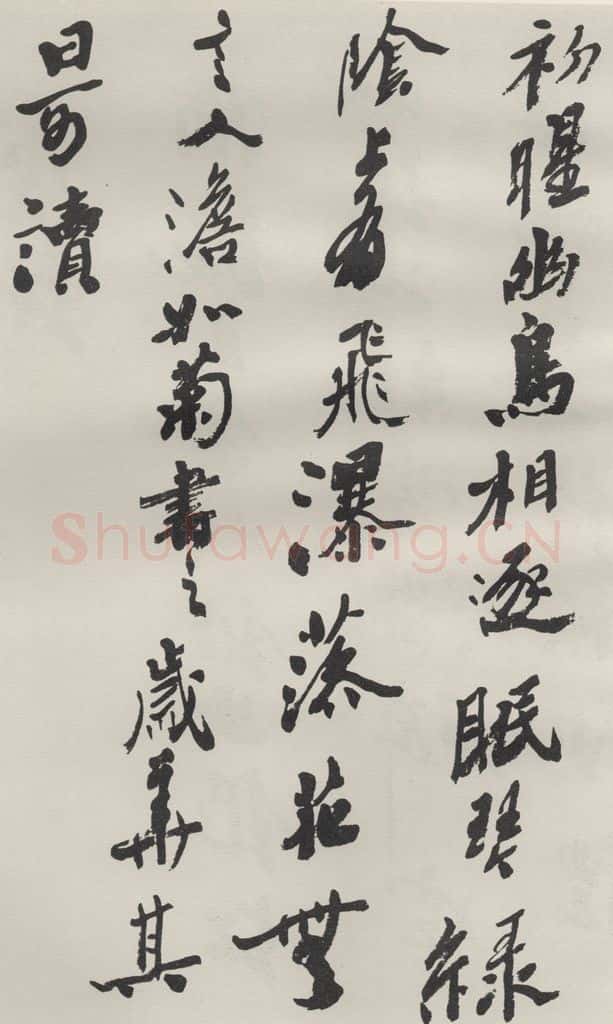 初暒幽鳥相逐眠琴綠
陰上有飛瀑落花無
言人澹如菊書之歲華其
曰可讀
Shufawang.CN